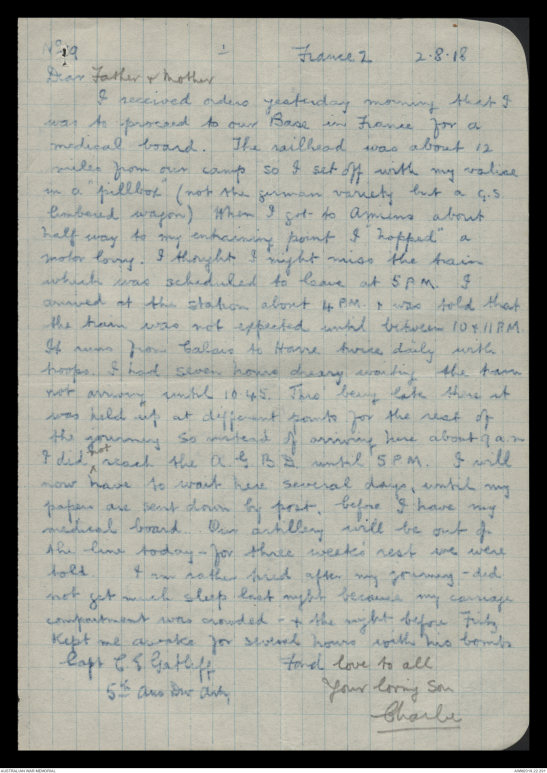 No 9 1 France 2 2-8-18
Dear Father & Mother
I received orders yesterday morning that I
was to proceed to our Base in France for a
medical board. The railhead was about 12
miles from our camp so I set off with my valise
in a "pillbox (not the german variety but a G.S.
limbered wagon) When I got to Amiens about
half way to my entraining point I "hopped" a
motor lorry. I thought I might miss the train
which was scheduled to leave at 5 PM. I
arrived at the station about 4 PM. & was told that
the train was not expected until between 10 & 11 PM
It runs from Calais to Havre twice daily with
troops. I had seven hours dreary waiting the train
not arriving until 10.45. This being late there it
was held up at different points for the rest of
the journey so instead of arriving here about 7 a.m
I did not reach the A.G.B.D. until 5 PM. I will
now have to wait here several days, until my
papers are sent down by post, before I have my
medical board. Our artillery will be out of
the line today - for three weeks rest we were
told. I am rather tired after my journey - did
not get much sleep last night because my carriage
compartment was crowded - & the night before Fritz
kept me awake for several hours with his bombs
Capt C E Gatliff Fond love to all
5th Aus Div Arty Your loving Son
Charlie
AUSTRALIAN WAR MEMORIAL